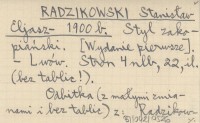 RADZIKOWSKI Stanisław
Eljasz- 1900 b. Styl zako-
piański. [Wydanie pierwsze].
- Lwów. Stron 4 nlb, 22, il.
(bez tablic!).
Odbitka (z małymi zmia-
nami i bez tablic) z: Radzikow-